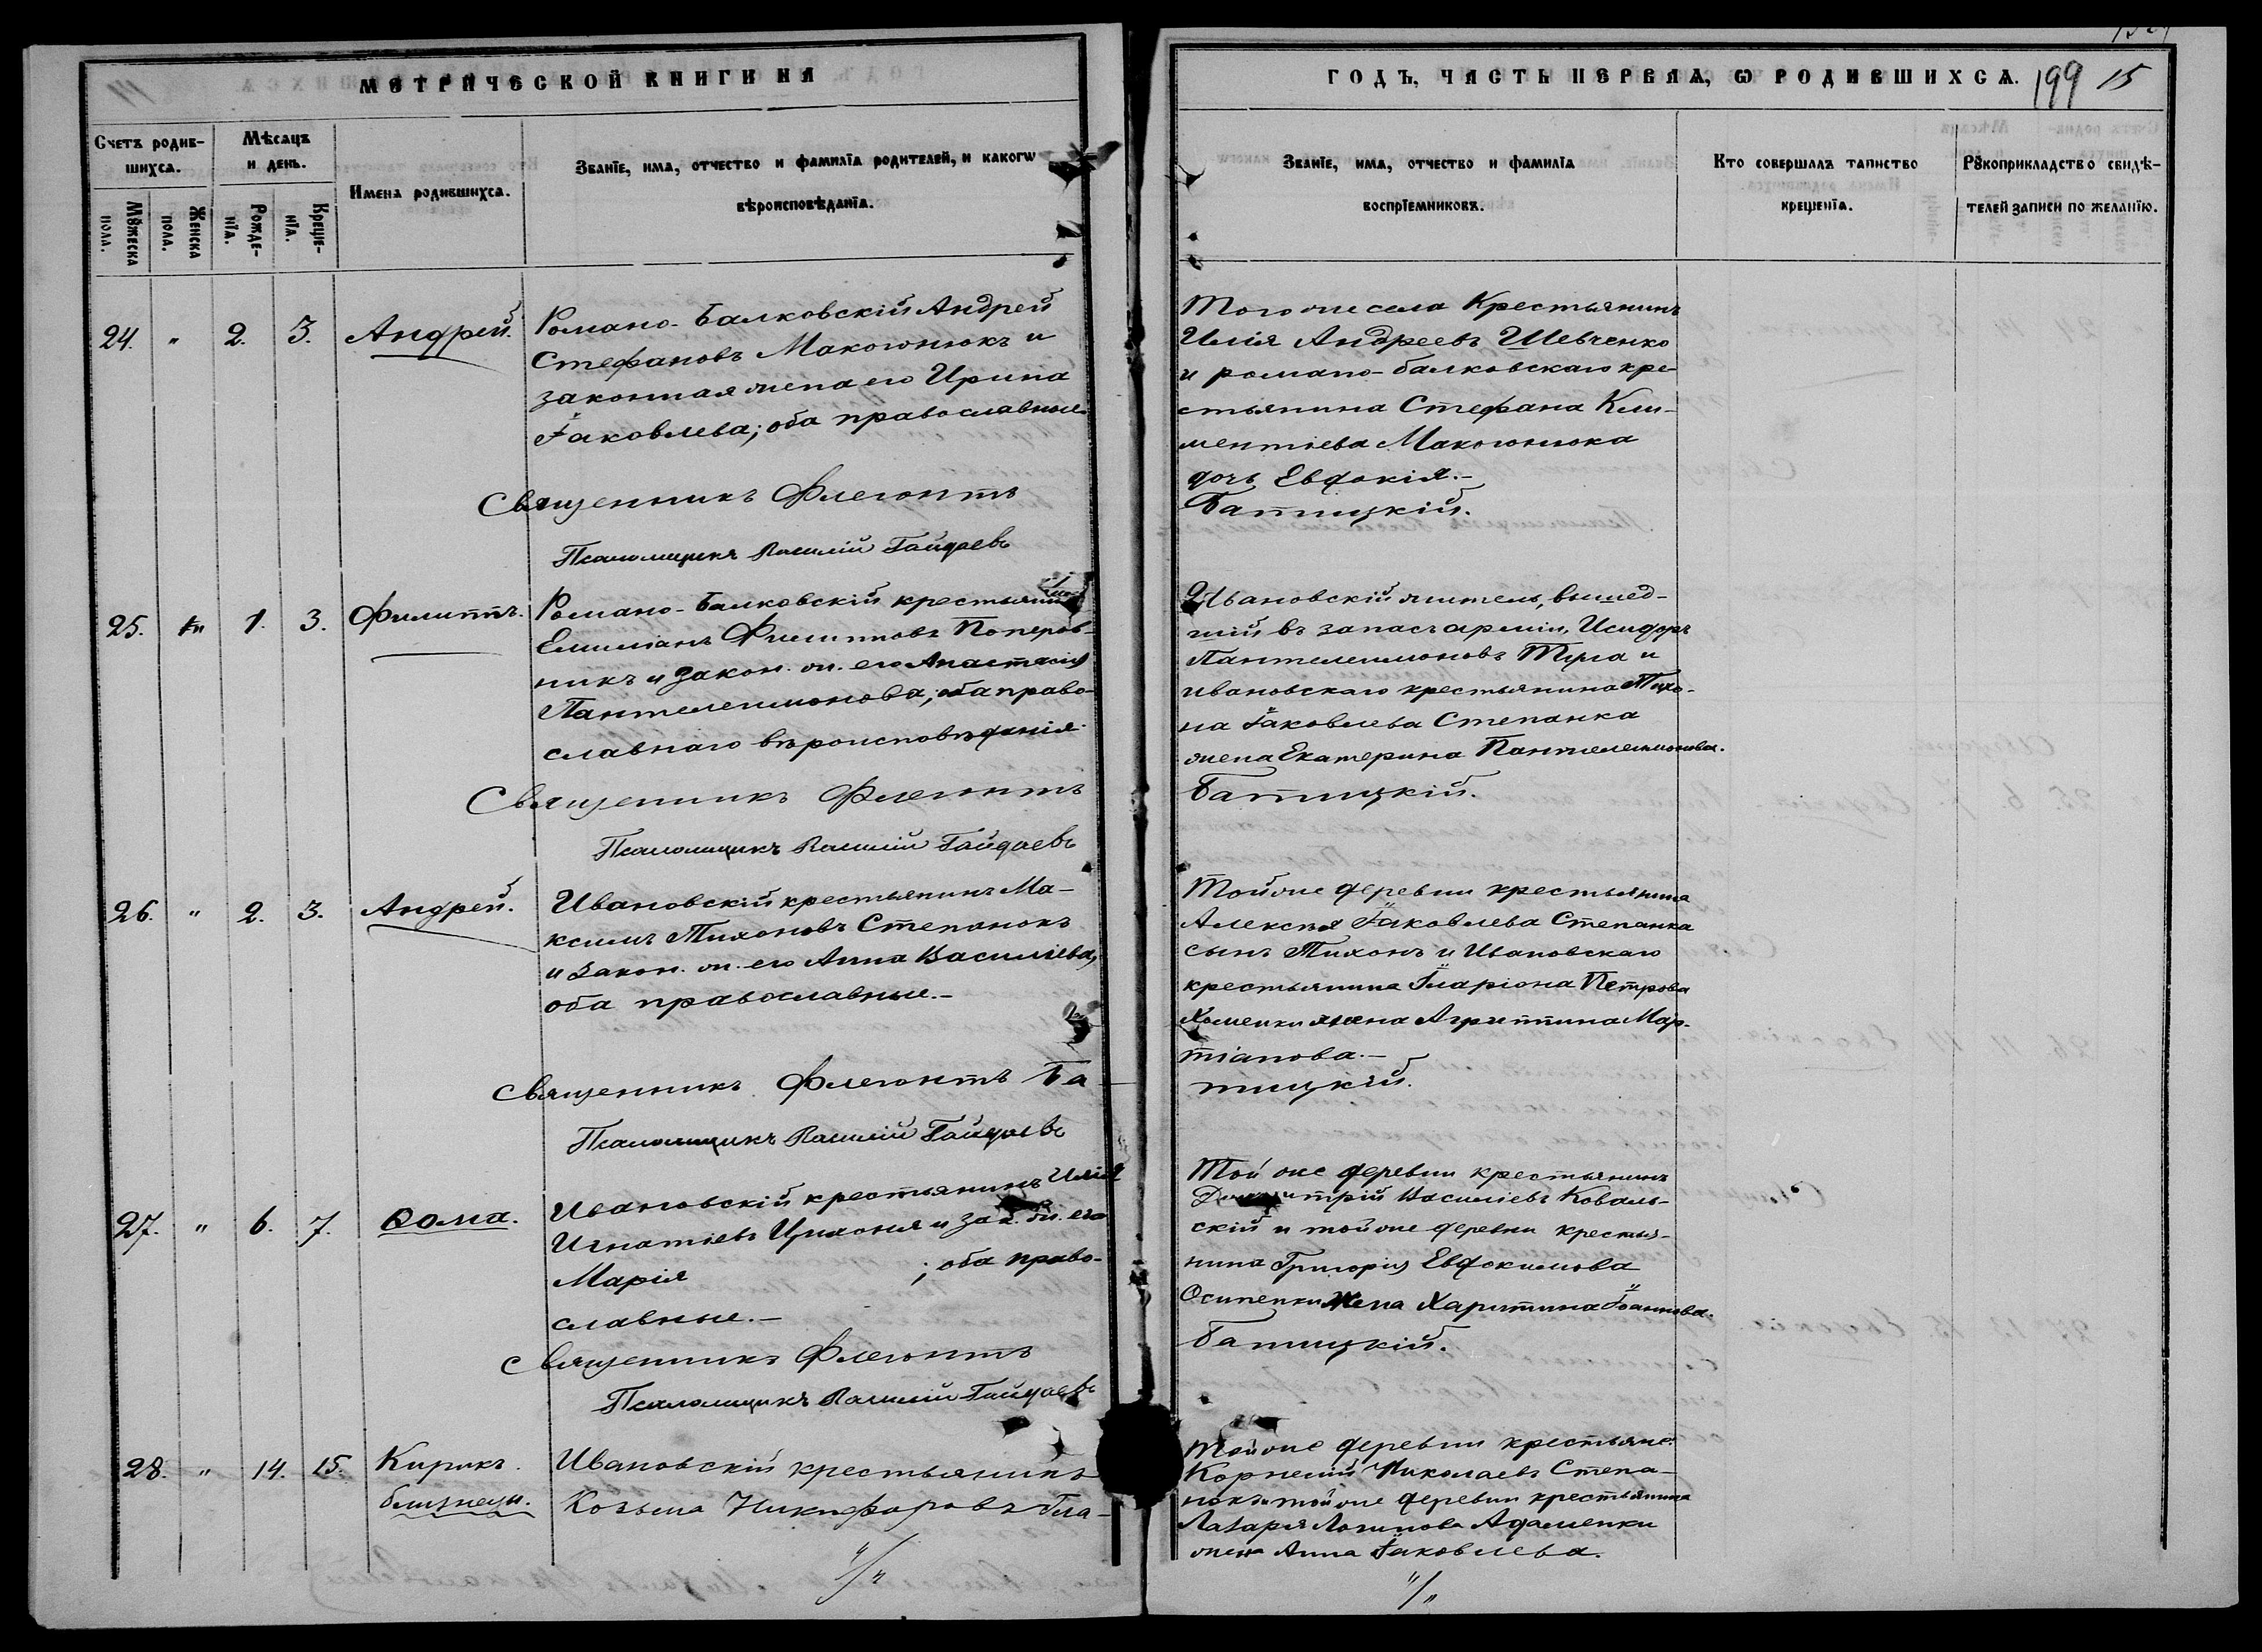 МЕТРИЧЕСКОЙ КНИГИ НА
Счетъ родив-
шихсѧ.
Мѣсяцъ
и день.
Имена родившихсѧ.
Званїе, имѧ, отчество и фамилїа родителей, и какогѡ
вѣроисповѣданїа.
Мꙋжеска
пола.
Женска
пола.
Рожде-
нїѧ.
Креще-
нїѧ.
24. " 2. 3. Андрей.
Романо-Балковскій Андрей
Стефановъ Макогонюкъ и
законная жена его Ирина
Іаковлева; оба православные
Священникъ Флегонтъ
Псаломщикъ Василій Гайдаевъ
25. " 1. 3. Филиппъ.
Романо-Балковскій крестьянинъ
Емиліанъ Филипповъ Попров-
никъ и закон. ж. его Анастасія
Пантелеимонова; оба право-
славнаго вѣроисповѣданія
Священникъ Флегонтъ
Псаломщикъ Василій Гайдаевъ
26. " 2. 3. Андрей.
Ивановскій крестьянинъ Ма-
ксимъ Тихоновъ Степанокъ
и закон. ж. его Анна Василіева,
оба православные.-
Священникъ Флегонтъ Ба-
Псаломщикъ Василій Гайдаевъ
27. " 6. 7. Ѳома.
Ивановскій крестьянинъ Илія
Игнатіевъ и зак. ж. его
Марія ; оба право-
славные.-
Священникъ Флегонтъ
Псаломщикъ Василій Гайдаевъ
28. " 14. 15. Кирикъ.
близнецы.
Ивановскій крестьянинъ
Козьма Никифоровъ Гла-
"/"
ГОДЪ, ЧАСТЬ ПЕРВАѦ, Ѡ РОДИВШИХСѦ. 199 15
Званїе, имѧ, отчество и фамилїа
воспрїемниковъ.
Кто совершалъ таинство
крещенїѧ.
Рꙋкоприкладство свидѣ-
телей записи по желанїю.
Того же села Крестьянинъ
Илія Андреевъ Шевченко
и романо-балковскаго кре-
стьянина Стефана Кли-
ментіева Макогонюка
дочь Евдокія.-
Батицкій.
Ивановскій житель, вышед-
шій въ запасъ арміи, Исидоръ
Пантелеимоновъ Туга и
ивановскаго крестьянина Тихо-
на Іаковлева Степанка
жена Екатерина Пантелеимонова.
Батицкій.
Той же деревни крестьянина
Алексѣя Іаковлева Степанка
сынъ Тихонъ и Ивановскаго
крестьянина Іларіона Петрова
Хоменки жена Агриппина Мар-
тіанова.-
тицкій.
Той же деревни крестьянинъ
Димитрій Василіевъ Коваль-
скій и той же деревни крестья-
нина Григорія Евдокимова
Осипенки жена Харитина Іоаннова.
Батицкій.
Той же деревни крестьяне:
Корнелій Николаевъ Степа-
нокъ и той же деревни крестьянина
Лазаря Логинова Адаменки
жена Анна Іаковлева.
"/"